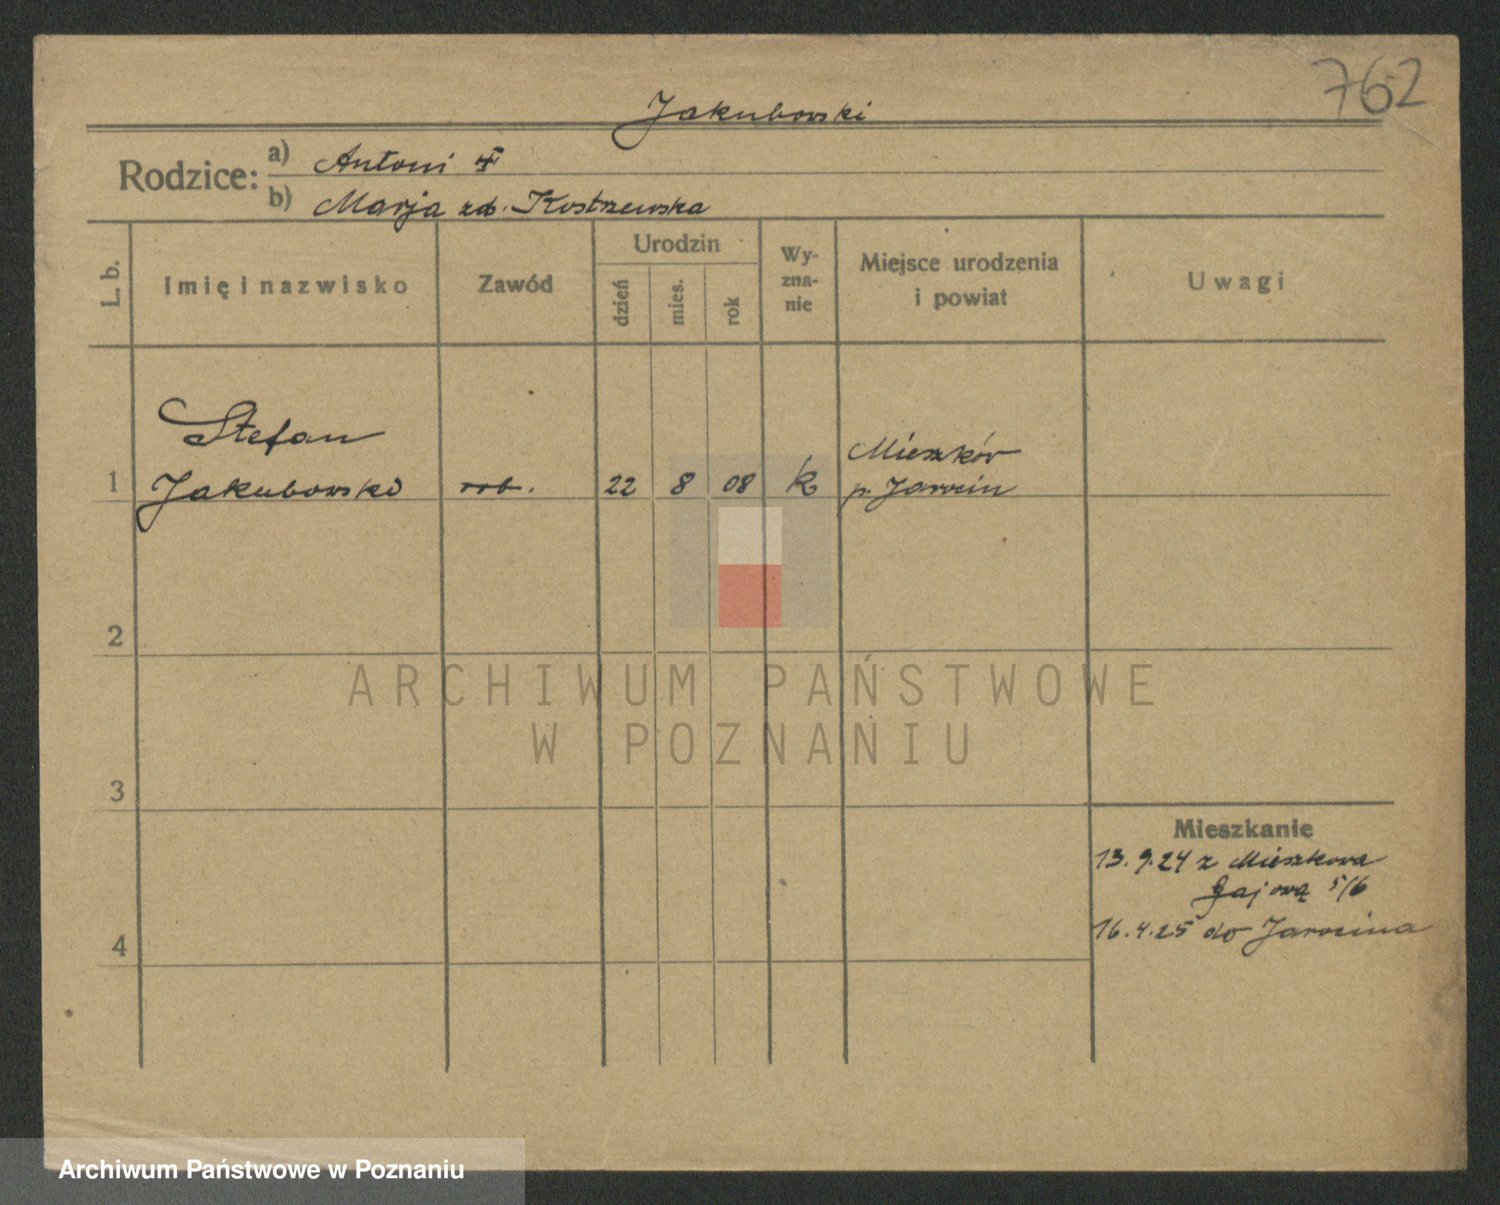 762
Jakubowski
Rodzice: a) Antoni
b) Marja zd. Kostrzewska
L. b.
Imię i nazwisko
Zawód
Urodzin
dzień
mies.
rok
Wy-
zna-
nie
Miejsce urodzenia
i powiat
Uwagi
Stefan
1 Jakubowski rob. 22 8 08 k Mieszków
p. Jarocin
2
3
4
Mieszkanie
13.9.24 z Mieszkowa
Gajową 5/6
16.4.25 do Jarocina
ARCHIWUM PAŃSTWOWE
W POZNANIU
Archiwum Państwowe w Poznaniu